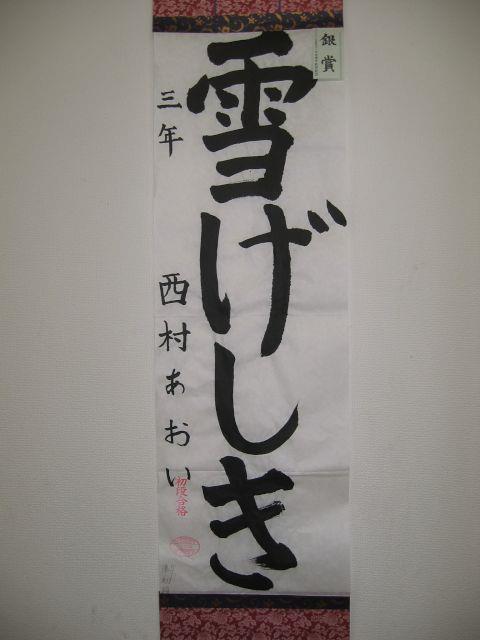 銀賞
雪げしき
三年 西村あおい
初段合格